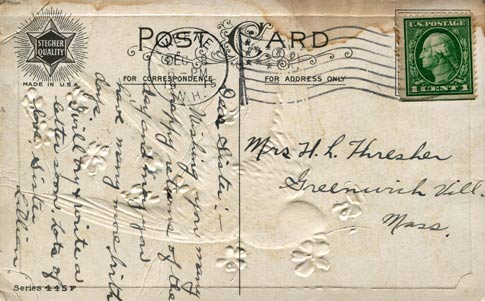 STECHER
QUALITY
MADE IN U.S.A.
POST CARD
FOR CORRESPONDENCE
FOR ADDRESS ONLY
DEC
PM
N.H.
U.S. POSTAGE
1 CENT 1
Dear Sister:-
Wishing you many
happy returns of the
day and may you
have many more birth
days.
Will try & write a
letter soon. Lots of
love Sister
Lillian
Mrs H. L. Thresher
Greenwich Vill.
Mass.
Series 445 F